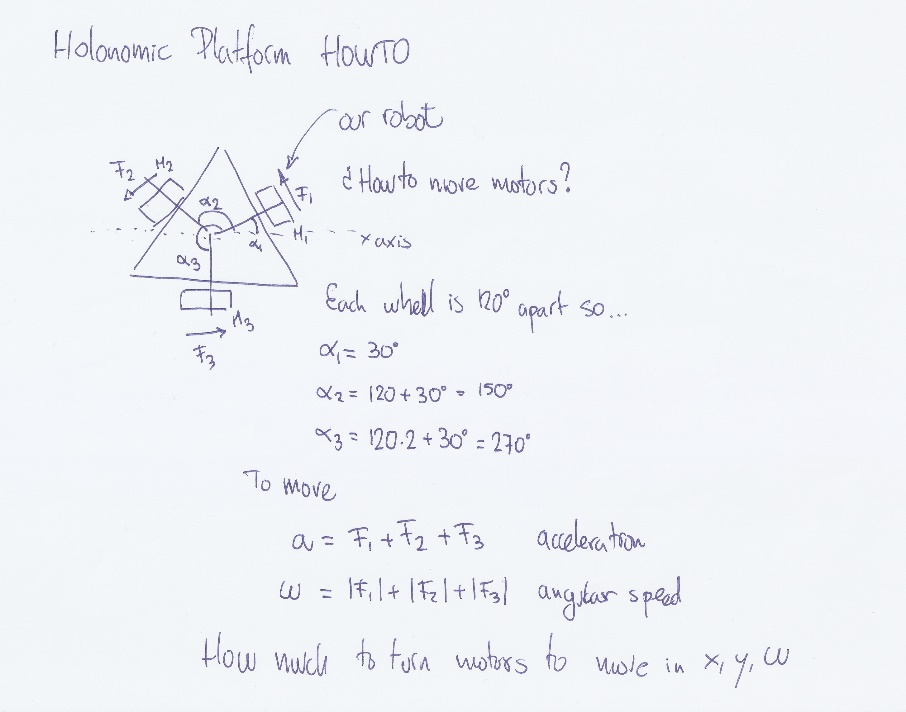 Holonomic Platform HowTO
our robot
¿How to move motors?
F₂ M₂
F₁
α₂
M₁
α₁
x axis
α₃
M₃
F₃
Each whell is 120° apart so...
α₁ = 30°
α₂ = 120 + 30° = 150°
α₃ = 120·2 + 30° = 270°
To move
a = F₁ + F₂ + F₃ acceleration
ω = |F₁| + |F₂| + |F₃| angular speed
How much to turn motors to move in x, y, ω